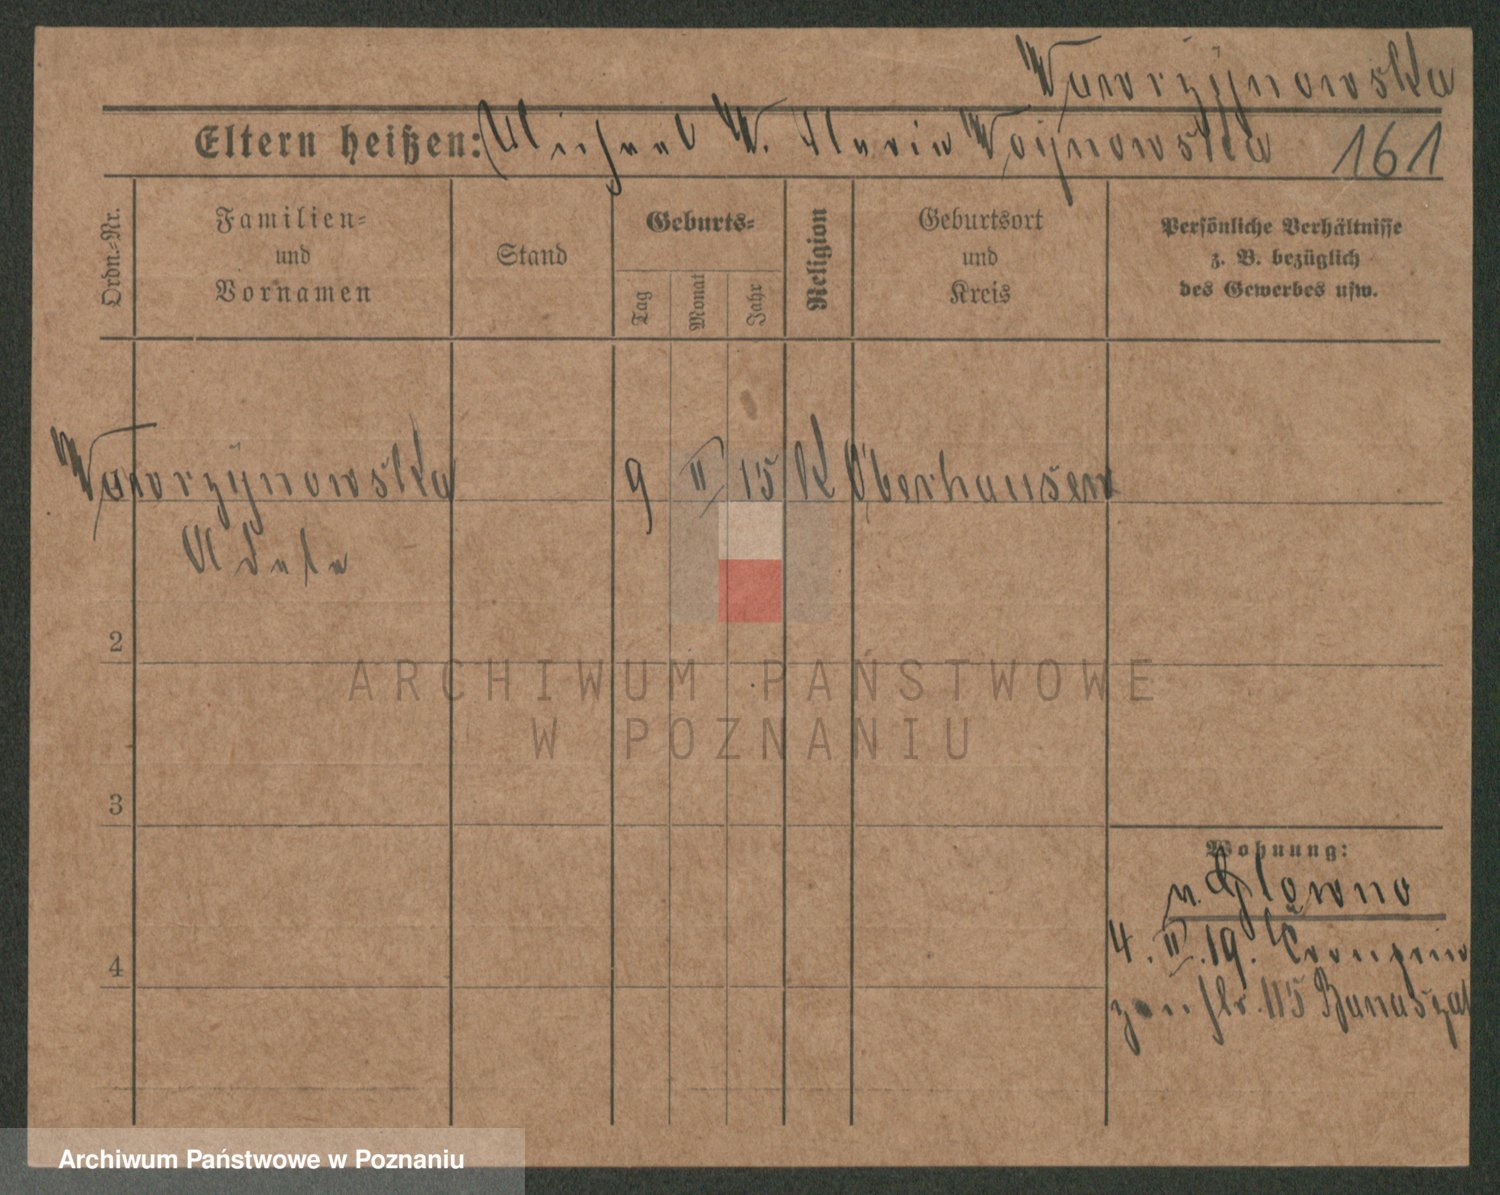 Wawrzynowska
Eltern heißen: Michael W. Maria Woynowska 161
Ordn.-Nr.
Familien-
und
Vornamen
Stand
Geburts-
Tag
Monat
Jahr
Religion
Geburtsort
und
Kreis
Persönliche Verhältnisse
z. B. bezüglich
des Gewerbes usw.
Wawrzynowska 9 II 15 K Oberhausen
Adela
2
3
4
Wohnung:
n. Główno
4. II. 19. Kronprin
zenstr. 115 Banaszak
ARCHIWUM PAŃSTWOWE
W POZNANIU
Archiwum Państwowe w Poznaniu